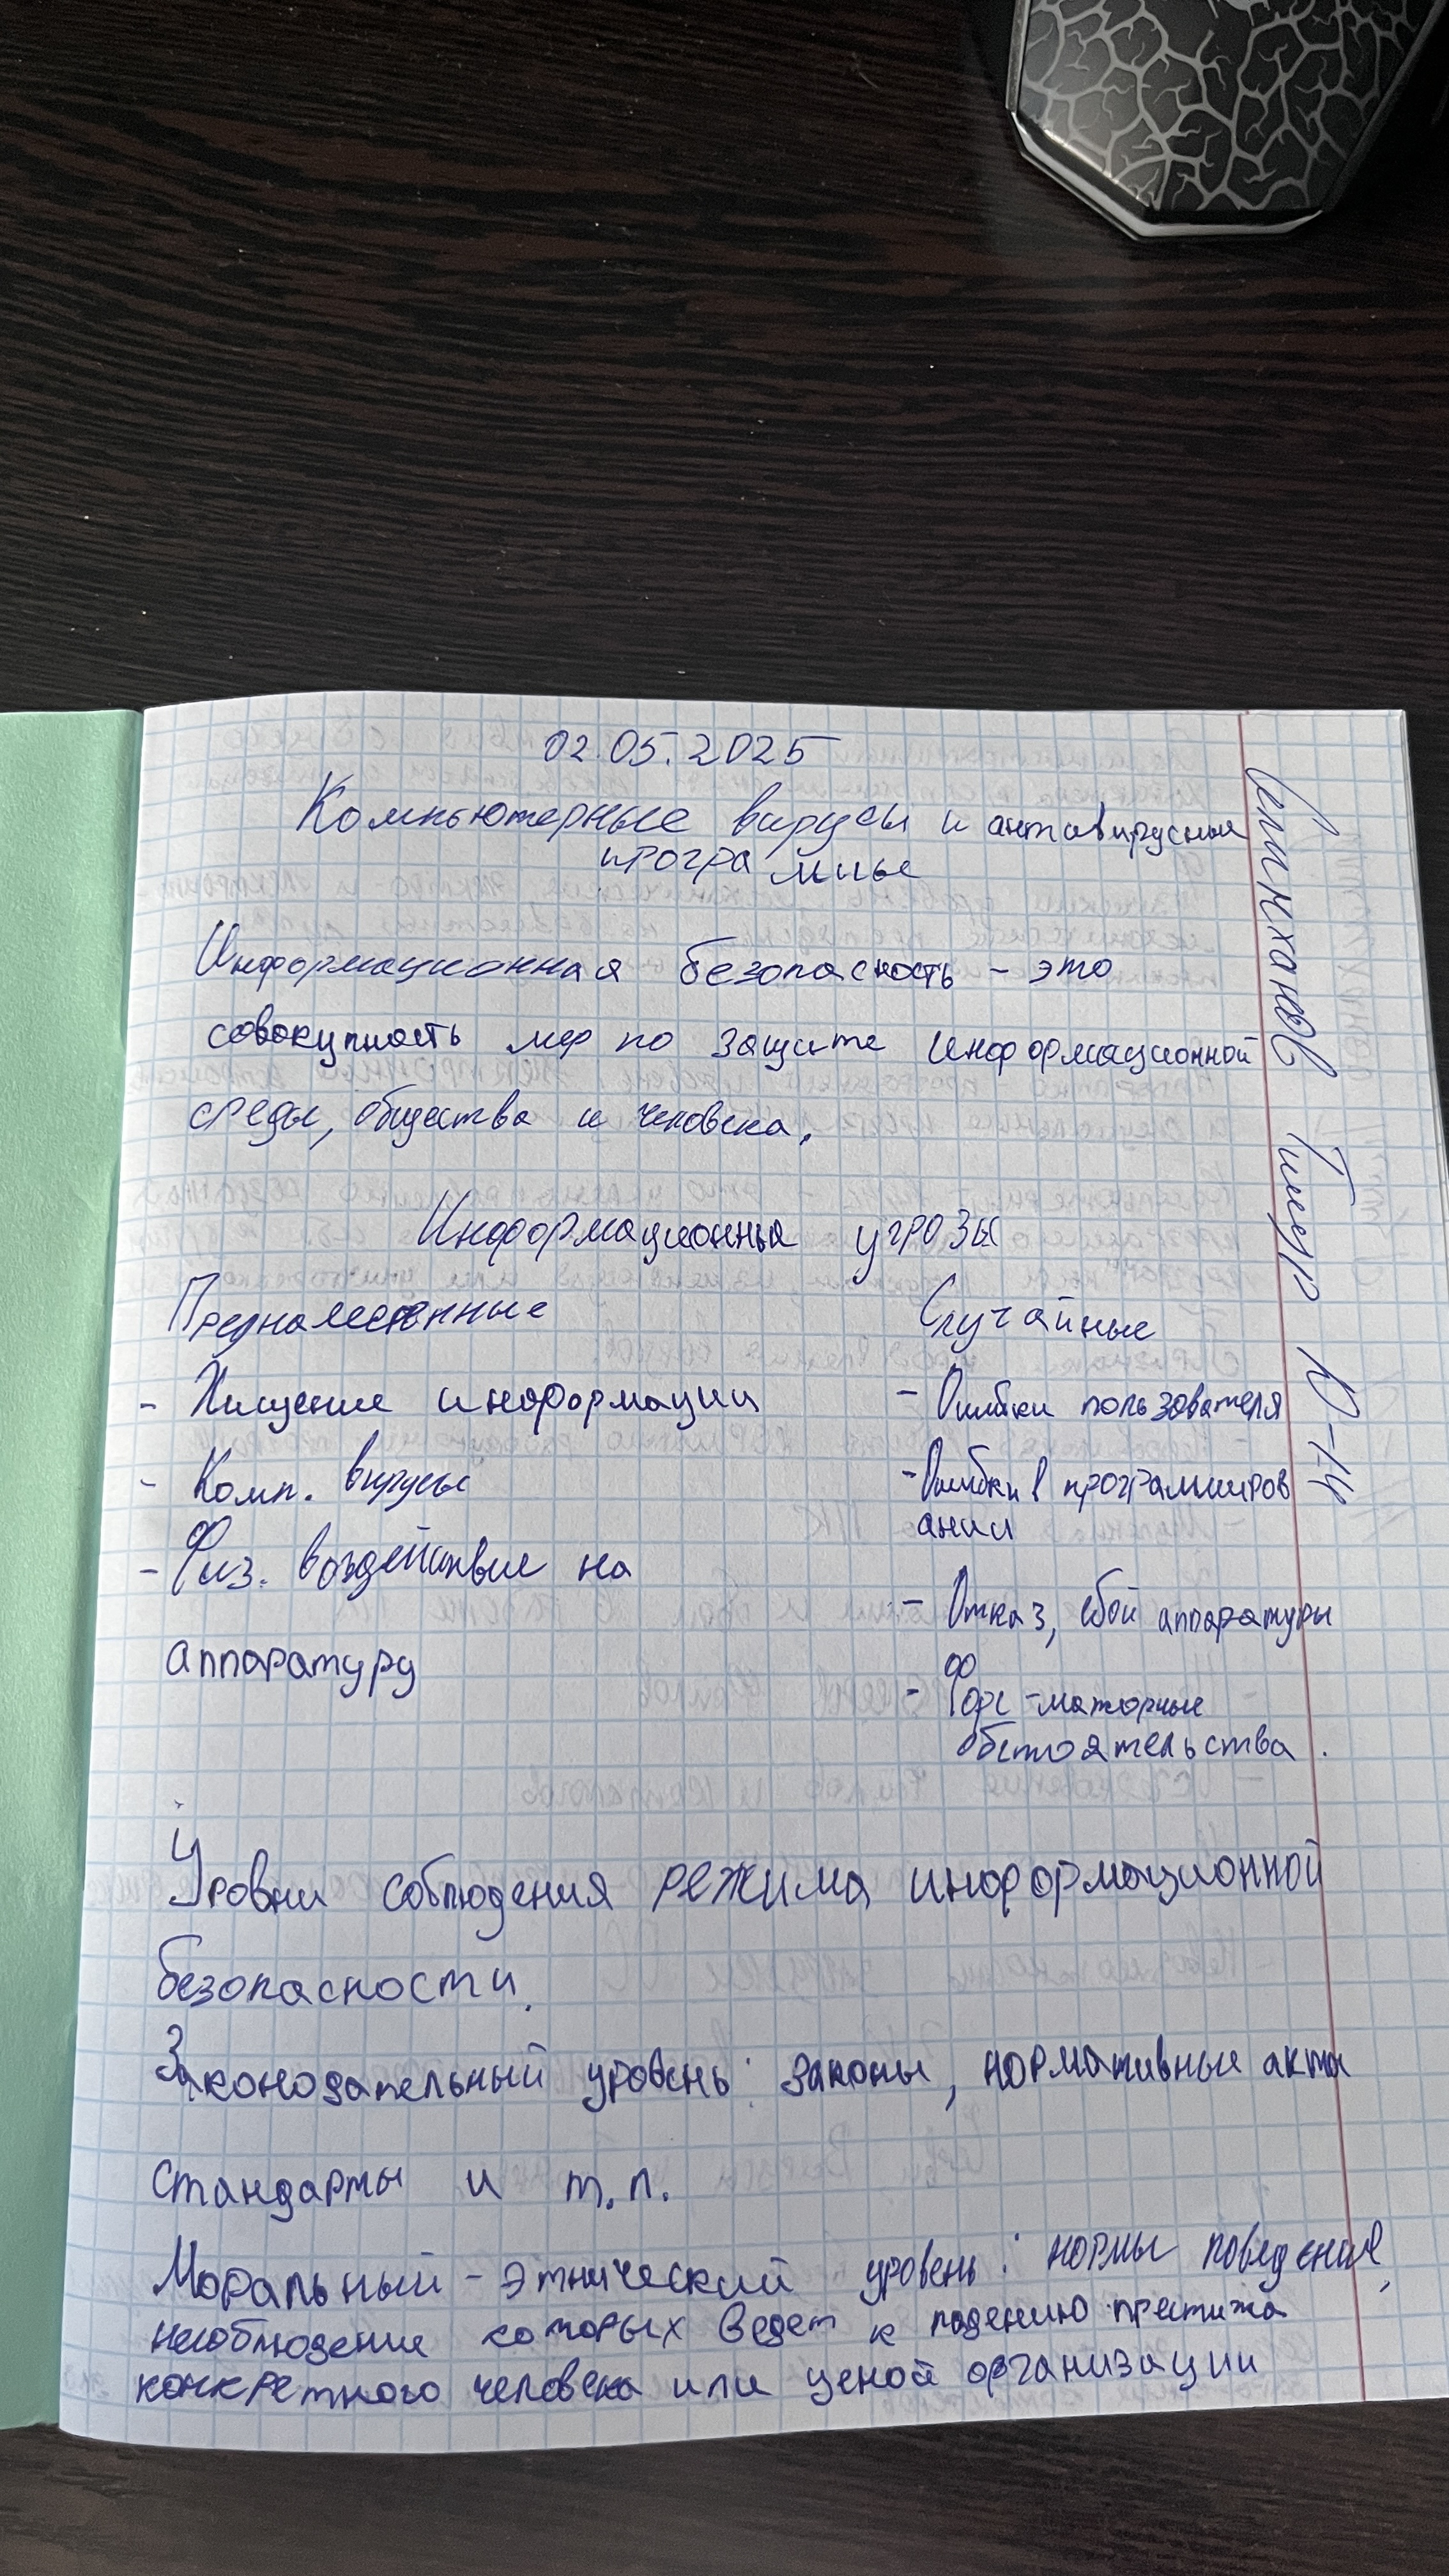 02.05.2025
Компьютерные вирусы и антивирусные
программы
Информационная безопасность - это
совокупность мер по защите информационной
среды, общества и человека.
Информационные угрозы
Преднамеренные
- Хищение информации
- Комп. вирусы
- Физ. воздействие на
аппаратуру
Случайные
- Ошибки пользователя
- Ошибки в программиров
ании
- Отказ, сбой аппаратуры
- Форс-мажорные
обстоятельства.
Уровни соблюдения режима информационной
безопасности.
Законодательный уровень: законы, нормативные акты
стандарты и т.п.
Моральный-этнический уровень: нормы поведения,
несоблюдение которых ведет к падению престижа
конкретного человека или ценой организации
Тимур Ю-14